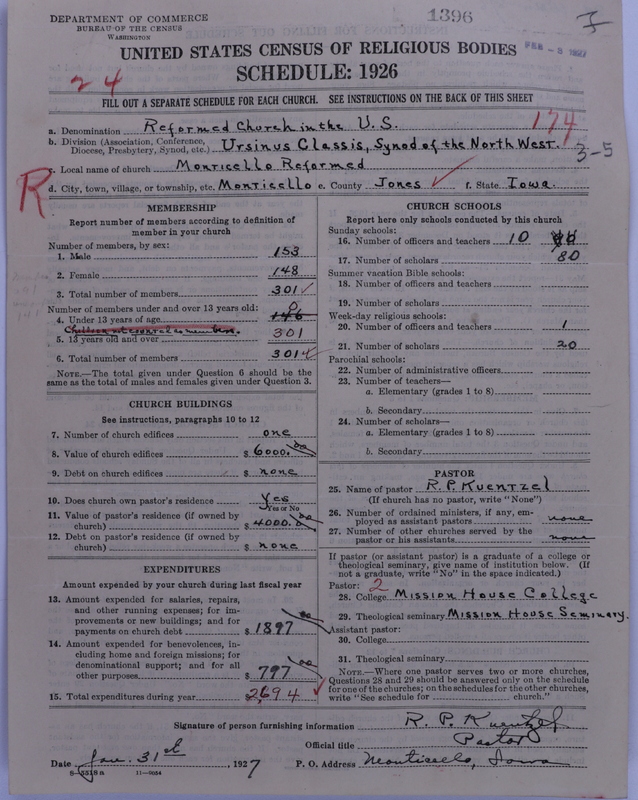 DEPARTMENT OF COMMERCE
BUREAU OF THE CENSUS
WASHINGTON
1396
FEB -8 1927
UNITED STATES CENSUS OF RELIGIOUS BODIES
SCHEDULE: 1926
24
FILL OUT A SEPARATE SCHEDULE FOR EACH CHURCH. SEE INSTRUCTIONS ON THE BACK OF THIS SHEET
a. Denomination Reformed Church in the U.S. 174
b. Division (Association, Conference, Diocese, Presbytery, Synod, etc.) Ursinus Classis, Synod of the North West. 3-5
c. Local name of church Monticello Reformed
R
d. City, town, village, or township, etc. Monticello e. County Jones f. State Iowa.
MEMBERSHIP
Report number of members according to definition of
member in your church
Number of members, by sex:
1. Male 153
2. Female 148
3. Total number of members 301
Number of members under and over 13 years old:
4. Under 13 years of age 0
Children not counted as members.
5. 13 years old and over 301
6. Total number of members 301
NOTE.—The total given under Question 6 should be
same as the total of males and females given under Question 3.
CHURCH BUILDINGS
See instructions, paragraphs 10 to 12
7. Number of church edifices one
8. Value of church edifices $ 6000.00
9. Debt on church edifices $ none
10. Does church own pastor's residence Yes
Yes or No
11. Value of pastor's residence (if owned by
church) $ 4000.00
12. Debt on pastor's residence (if owned by
church) $ none
EXPENDITURES
Amount expended by your church during last fiscal year
13. Amount expended for salaries, repairs,
and other running expenses; for im-
provements or new buildings; and for
payments on church debt $ 1897 00
14. Amount expended for benevolences, in-
cluding home and foreign missions; for
denominational support; and for all
other purposes $ 797 00
15. Total expenditures during year $ 2694
CHURCH SCHOOLS
Report here only schools conducted by this church
Sunday schools:
16. Number of officers and teachers 10
17. Number of scholars 80
Summer vacation Bible schools:
18. Number of officers and teachers
19. Number of scholars
Week-day religious schools:
20. Number of officers and teachers 1
21. Number of scholars 20
Parochial schools:
22. Number of administrative officers
23. Number of teachers—
a. Elementary (grades 1 to 8)
b. Secondary
24. Number of scholars—
a. Elementary (grades 1 to 8)
b. Secondary
PASTOR
25. Name of pastor R. P. Kuentzel
(If church has no pastor, write "None")
26. Number of ordained ministers, if any, em-
ployed as assistant pastors none
27. Number of other churches served by the
pastor or his assistants none
If pastor (or assistant pastor) is a graduate of a college or
theological seminary, give name of institution below. (If
not a graduate, write "No" in the space indicated.)
Pastor: 2
28. College Mission House College
29. Theological seminary Mission House Seminary.
Assistant pastor:
30. College
31. Theological seminary
NOTE.—Where one pastor serves two or more churches,
Questions 28 and 29 should be answered only on the schedule
for one of the churches; on the schedules for the other churches,
write "See schedule for church."
Signature of person furnishing information R. P. Kuentzel
Official title Pastor
Date Jan. 31st, 1927 P. O. Address Monticello, Iowa
8—5518a 11—9034